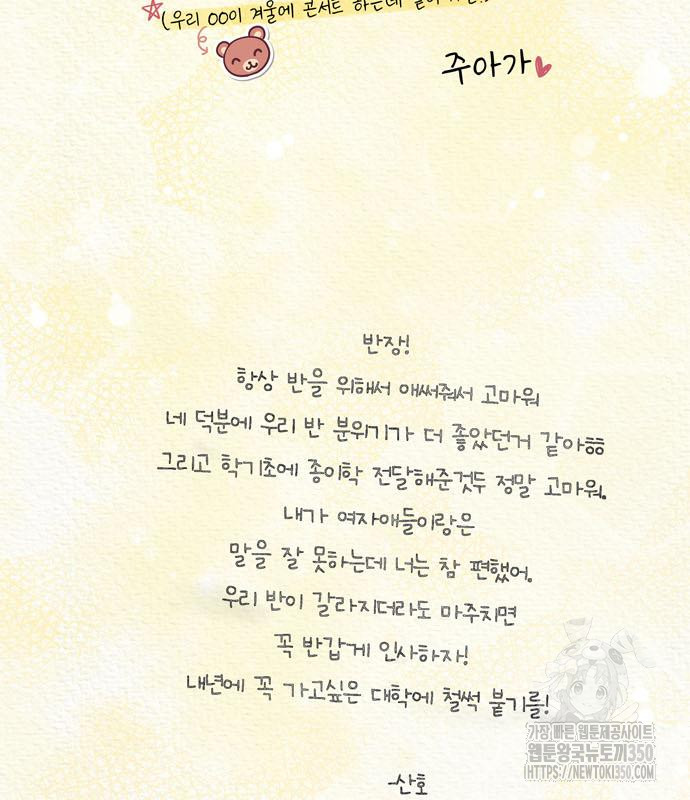 (우리 OO이 겨울에 콘서트 하는데
주아가
반장!
항상 반을 위해서 애써줘서 고마워
네 덕분에 우리 반 분위기가 더 좋았던거 같아ㅎㅎ
그리고 학기초에 종이학 전달해준것두 정말 고마워.
내가 여자애들이랑은
말을 잘 못하는데 너는 참 편했어.
우리 반이 갈라지더라도 마주치면
꼭 반갑게 인사하자!
내년에 꼭 가고싶은 대학에 철썩 붙기를!
가장 빠른 웹툰제공사이트
웹툰왕국뉴토끼350
HTTPS://NEWTOKI350.COM
-산호